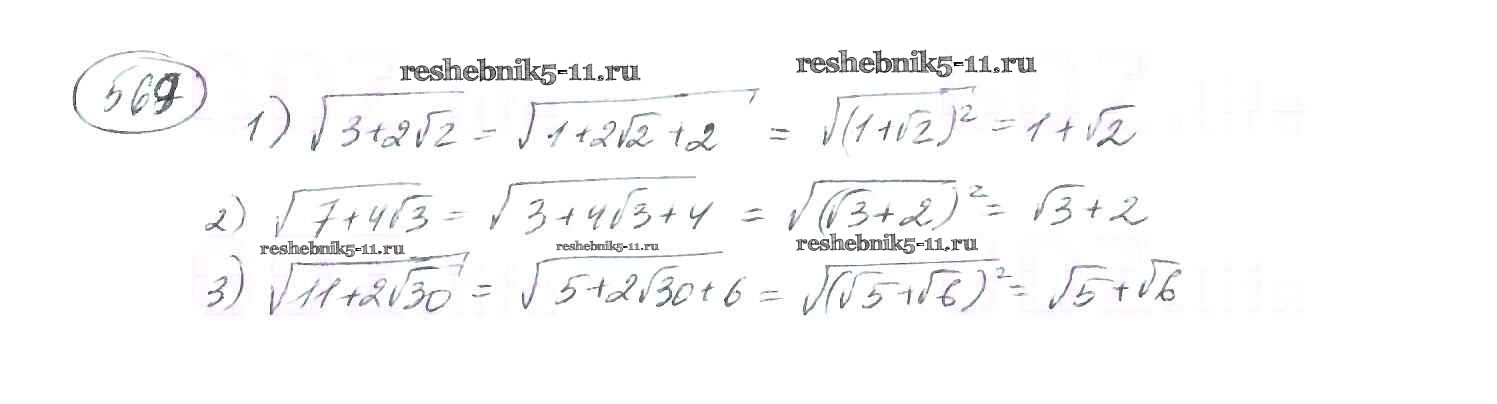 569
reshebnik5-11.ru reshebnik5-11.ru
1) √(3+2√2) = √(1+2√2+2) = √((1+√2)²) = 1+√2
2) √(7+4√3) = √(3+4√3+4) = √((√3+2)²) = √3+2
reshebnik5-11.ru reshebnik5-11.ru reshebnik5-11.ru
3) √(11+2√30) = √(5+2√30+6) = √((√5+√6)²) = √5+√6